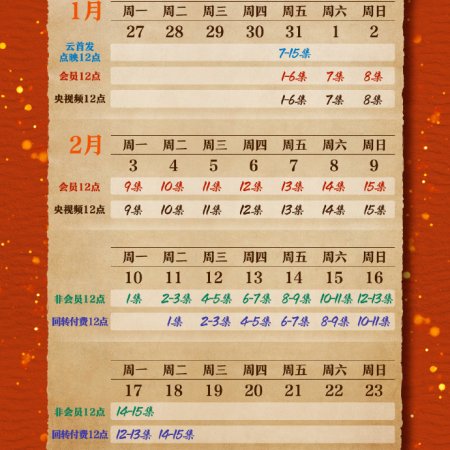 1月 周一 周二 周三 周四 周五 周六 周日
27 28 29 30 31 1 2
云首发 点映12点 7-15集
会员12点 1-6集 7集 8集
央视频12点 1-6集 7集 8集
2月 周一 周二 周三 周四 周五 周六 周日
3 4 5 6 7 8 9
会员12点 9集 10集 11集 12集 13集 14集 15集
央视频12点 9集 10集 11集 12集 13集 14集 15集
周一 周二 周三 周四 周五 周六 周日
10 11 12 13 14 15 16
非会员12点 1集 2-3集 4-5集 6-7集 8-9集 10-11集 12-13集
回转付费12点 1集 2-3集 4-5集 6-7集 8-9集 10-11集
周一 周二 周三 周四 周五 周六 周日
17 18 19 20 21 22 23
非会员12点 14-15集
回转付费12点 12-13集 14-15集